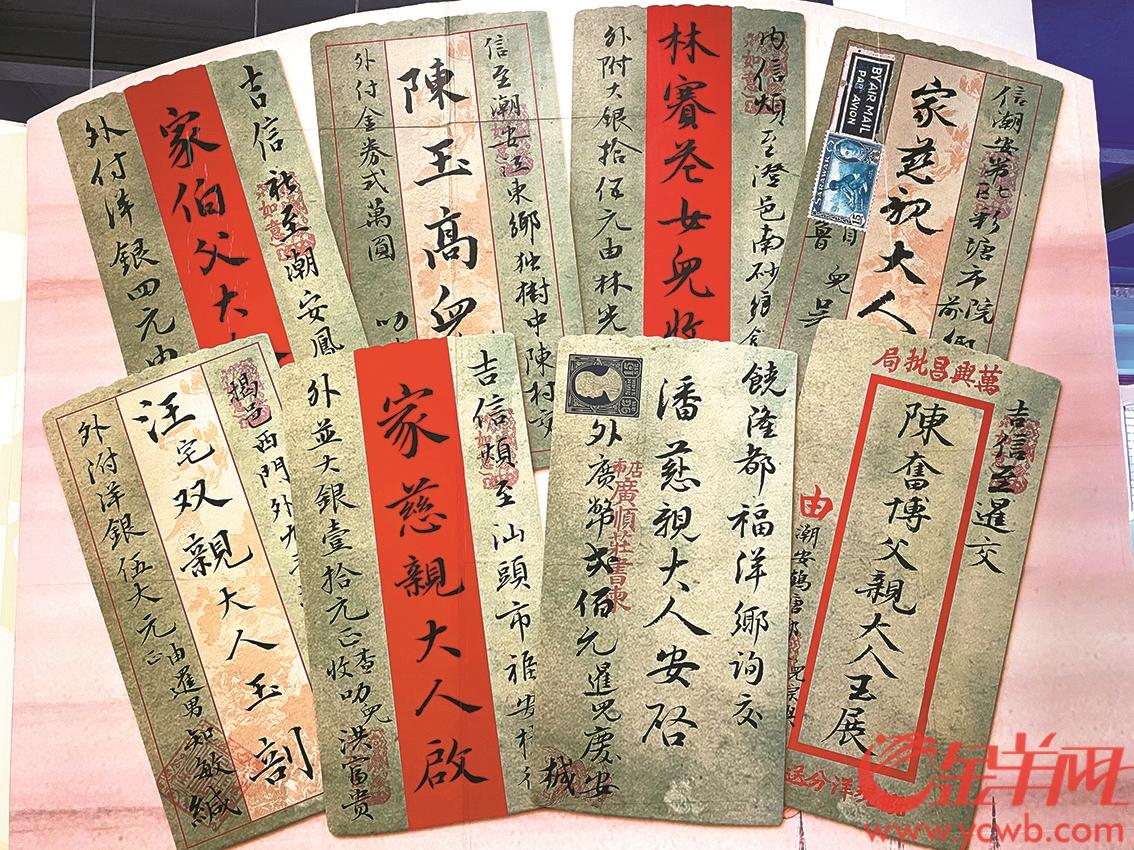 吉信
祉至潮安鳳
如意
家伯父大人
外付洋銀四元由
信至潮安江東鄉独樹中陳村交
陳玉高
外付金券弍萬圓
叻
内信煩至澄邑南砂鄉
如意
林賽花女兒收
外附大銀拾佰元由林光
信潮安第七區彩塘市院前鄉
家慈親大人
BY AIR MAIL
PAR AVION
兒吳
揭邑西門外
汪宅双親大人玉剖
外附洋銀伍大元正
由暹男知敏緘
吉信煩至汕頭市
如意
家慈親大人啟
外並大銀壹拾元正查收叻兒洪富贵
饒隆都福洋鄉詢交
潘慈親大人安啓
廣順莊書柬
外廣幣弍佰元暹兒慶安
椷
萬興昌批局
吉信至暹交
陳奮博父親大人玉展
由
潮安鶴塘鄉
洋分送
金羊网
www.ycwb.com